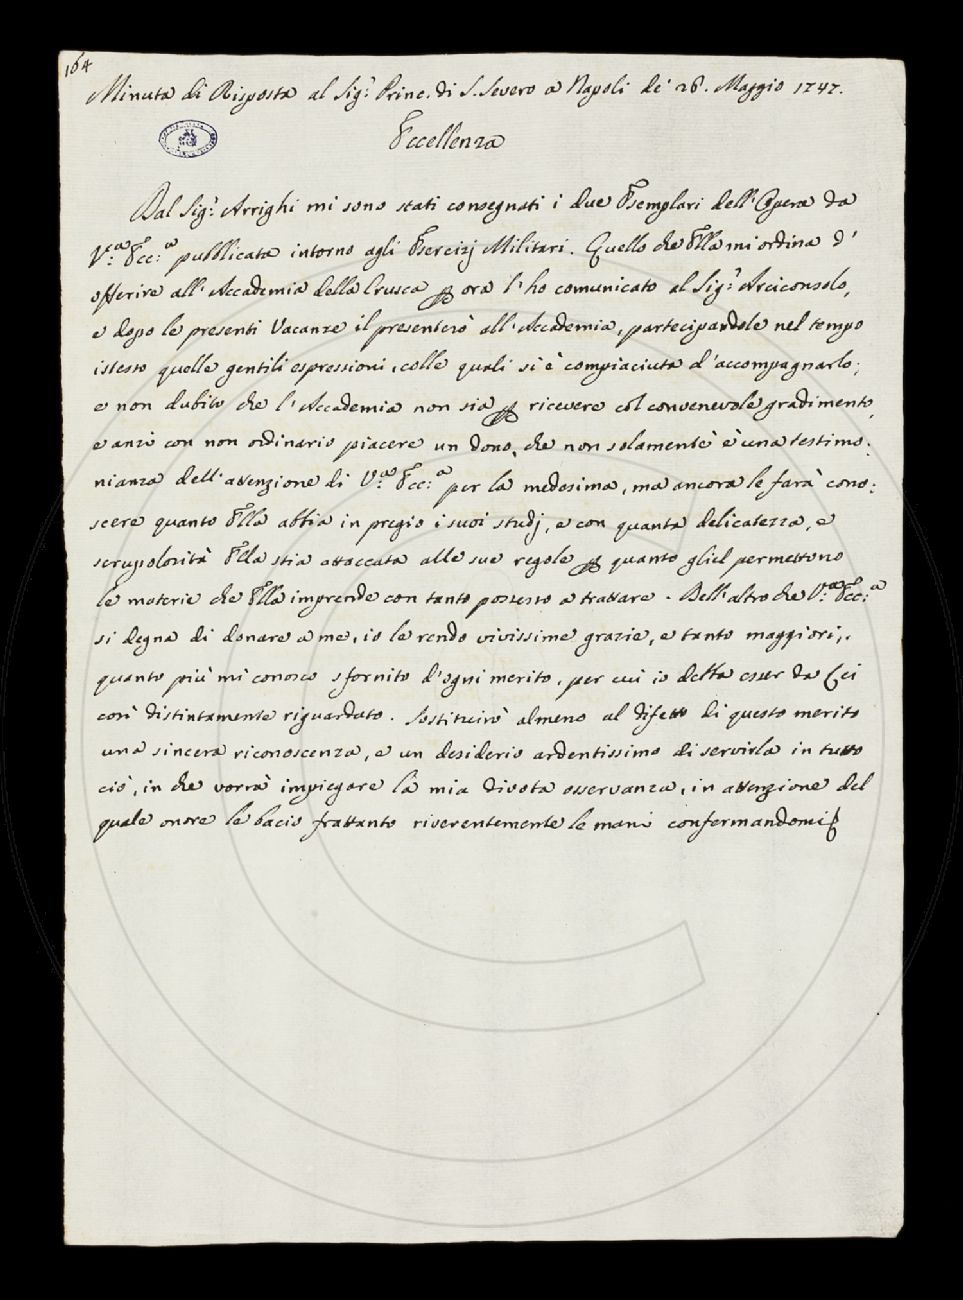 164
Minuta di Risposta al Sig.r Princ. di S. Severo a Napoli de' 26. Maggio 1747.
Eccellenza
Dal Sig.r Arrighi mi sono stati consegnati i due Esemplari dell'Opera da
V.a Ecc.a pubblicata intorno agli Esercizj Militari. Quello che Ella mi ordina d'
offerire all'Accademia della Crusca per ora l'ho comunicato al Sig.r Arciconsolo,
e dopo le presenti Vacanze il presenterò all'Accademia, partecipandole nel tempo
istesso quelle gentili espressioni, colle quali si è compiaciuta d'accompagnarlo;
e non dubito che l'Accademia non sia per ricevere col convenevole gradimento,
e anzi con non ordinario piacere un dono, che non solamente è una testimo:
nianza dell'attenzione di V.a Ecc.a per la medesima, ma ancora le farà cono:
scere quanto Ella abbia in pregio i suoi studj, e con quanta delicatezza, e
scrupolosità Ella stia attaccata alle sue regole per quanto gliel permettono
le materie che Ella imprende con tanto possesso a trattare. Dell'altro che V.a Ecc.a
si degna di donare a me, io le rendo vivissime grazie, e tanto maggiori,
quanto più mi conosco sfornito d'ogni merito, per cui io debba esser da Lei
così distintamente riguardato. Sostituirò almeno al difetto di questo merito
una sincera riconoscenza, e un desiderio ardentissimo di servirla in tutto
ciò, in che vorrà impiegare la mia divota osservanza, in attenzione del
quale onore le bacio frattanto riverentemente le mani confermandomi